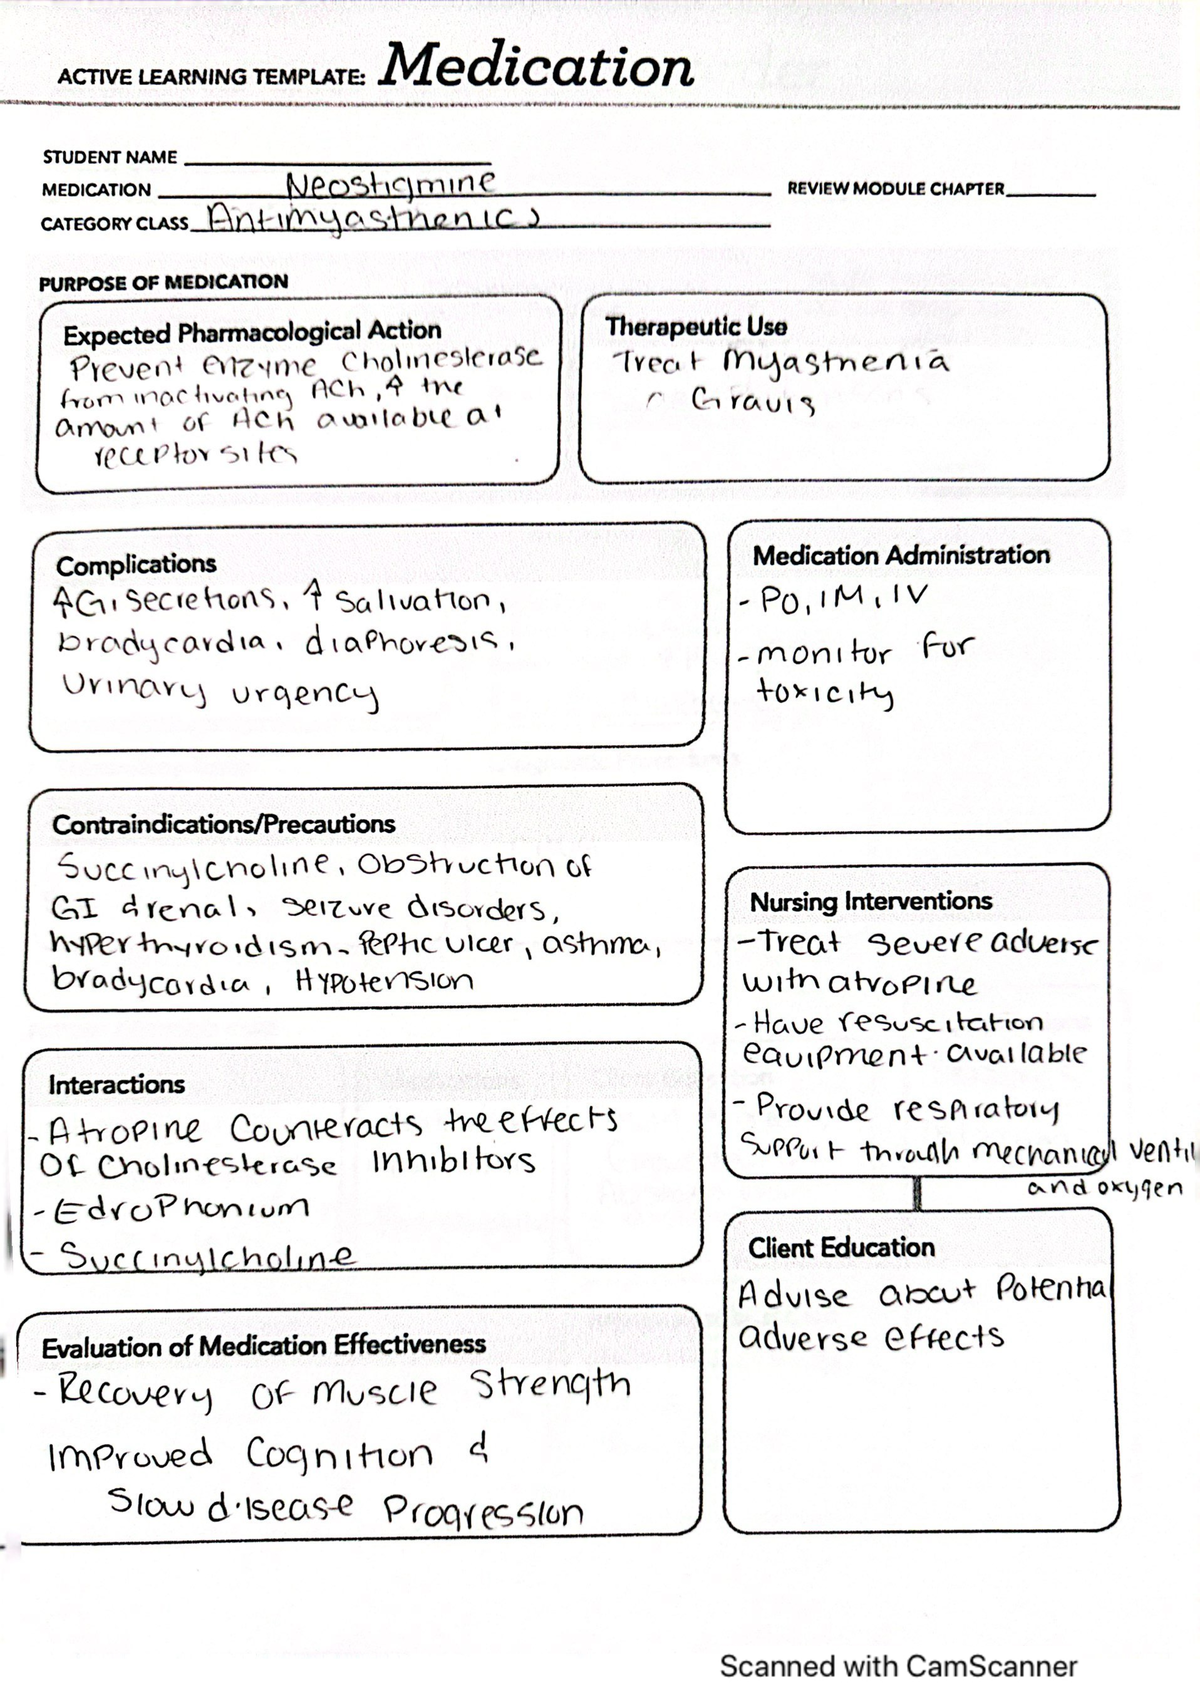 ACTIVE LEARNING TEMPLATE: Medication
STUDENT NAME
MEDICATION Neostigmine
REVIEW MODULE CHAPTER
CATEGORY CLASS Antimyasthenics
PURPOSE OF MEDICATION
Expected Pharmacological Action
Prevent enzyme Cholinesterase
from inactivating ACh, ↑ the
amount of ACh available at
receptor sites
Therapeutic Use
Treat Myasthenia
Gravis
Complications
↑GI secretions, ↑ salivation,
bradycardia, diaphoresis,
Urinary urgency
Medication Administration
- PO, IM, IV
- monitor for
toxicity
Contraindications/Precautions
Succinylcholine, Obstruction of
GI & renal, seizure disorders,
hyperthyroidism, Peptic ulcer, asthma,
bradycardia, Hypotension
Interactions
- Atropine Counteracts the effects
Of Cholinesterase Inhibitors
- Edrophonium
- Succinylcholine
Evaluation of Medication Effectiveness
- Recovery of muscle Strength
Improved Cognition &
Slow disease Progression
Nursing Interventions
- Treat severe adverse
with atropine
- Have resuscitation
equipment available
- Provide respiratory
support through mechanical ventil
and oxygen
Client Education
Advise about Potentia
adverse effects
Scanned with CamScanner